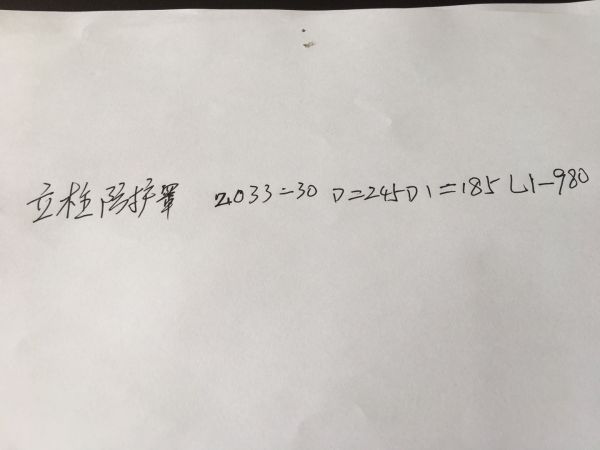 立柱防护罩 2033-30 D=245D1=185 L1-980